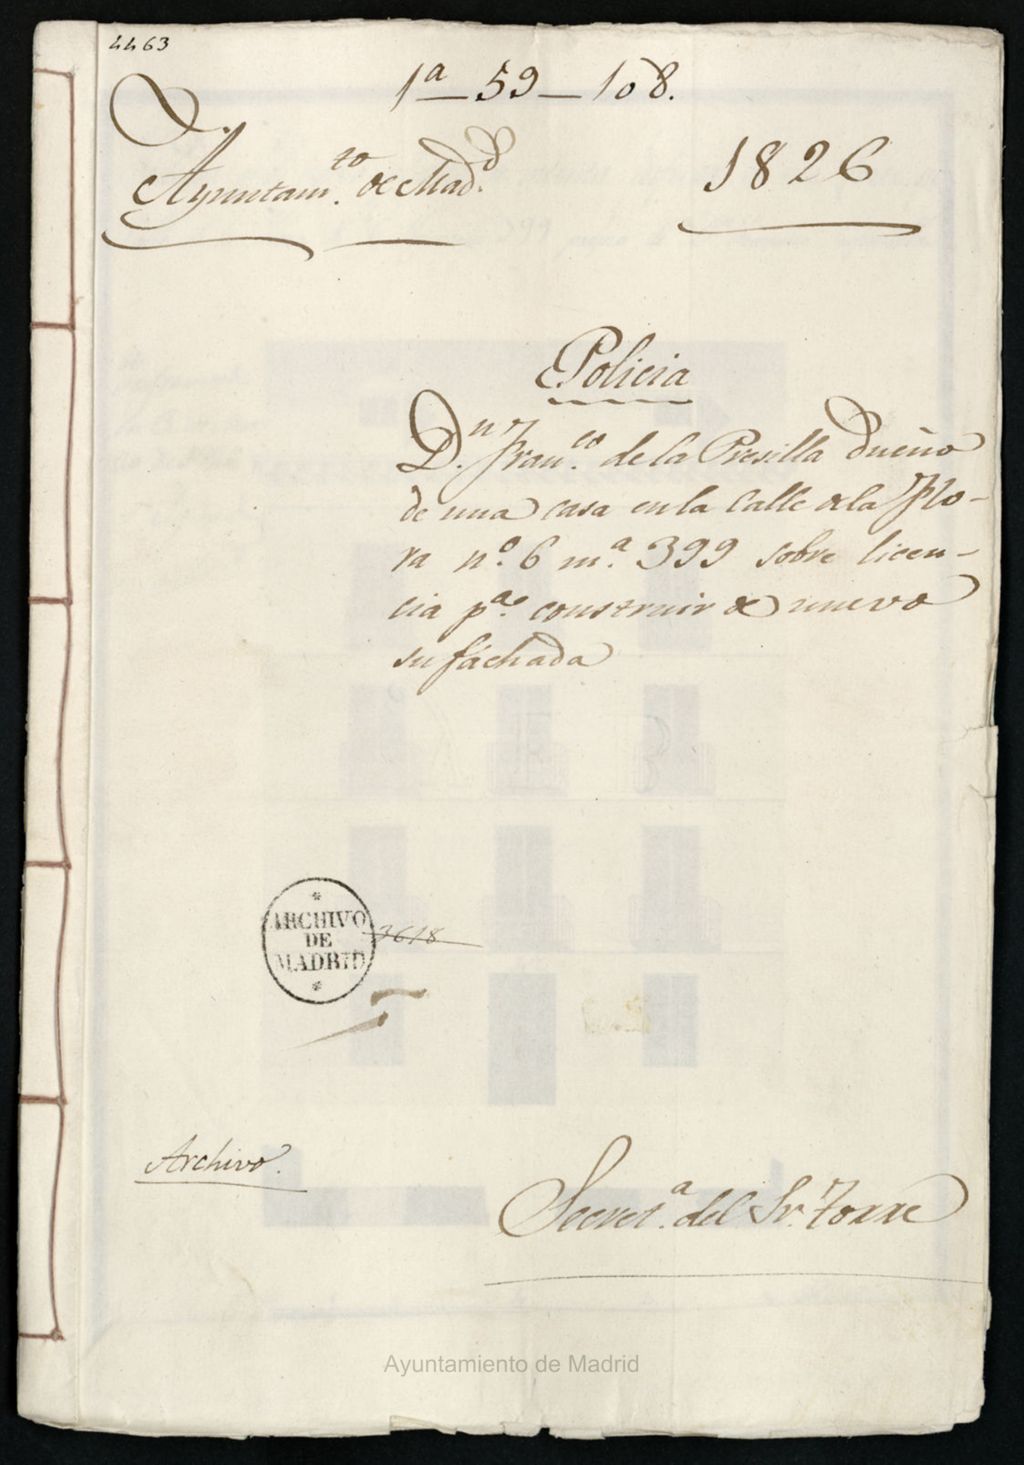 4463
1ª 59-108.
Ayuntam.to de Mad.d
1826
Policia
D.n Fran.co de la Presilla Dueño
de una casa en la Calle de la Flo-
ra n.º 6 m.ª 399 sobre licen-
cia p.ª construir de nuevo
su fachada
ARCHIVO
DE
MADRID
3618
Archivo.
Secret.ª del Sr. Torre
Ayuntamiento de Madrid